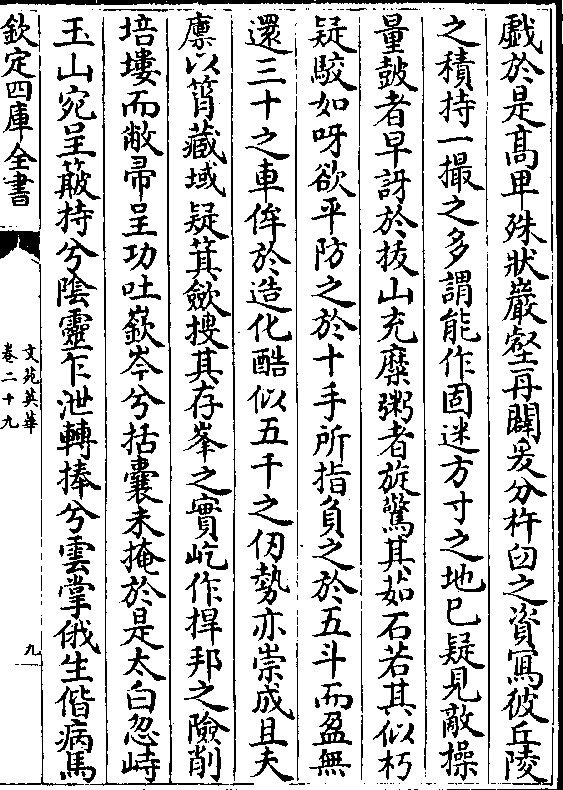 戲於是髙卑殊狀巖壑再闢爰分杵臼之資寫彼丘陵
之積持一撮之多謂能作固迷方寸之地已疑見敵操
量鼓者早訝於拔山充糜粥者旋驚其茹石若其似朽
疑駮如呀欲平防之於十手所指負之於五斗而盈無
還三十之車侔於造化酷似五千之仞勢亦崇成且夫
廪以筲藏域疑箕斂搜其存峯之實屹作捍邦之險削
培塿而敝帚呈功吐嶔岑兮括囊未掩於是太白忽峙
玉山宛呈簸持兮陰靈乍泄轉捧兮雲掌俄生偕病馬
欽定四庫全書
文苑英華
卷二十九
九